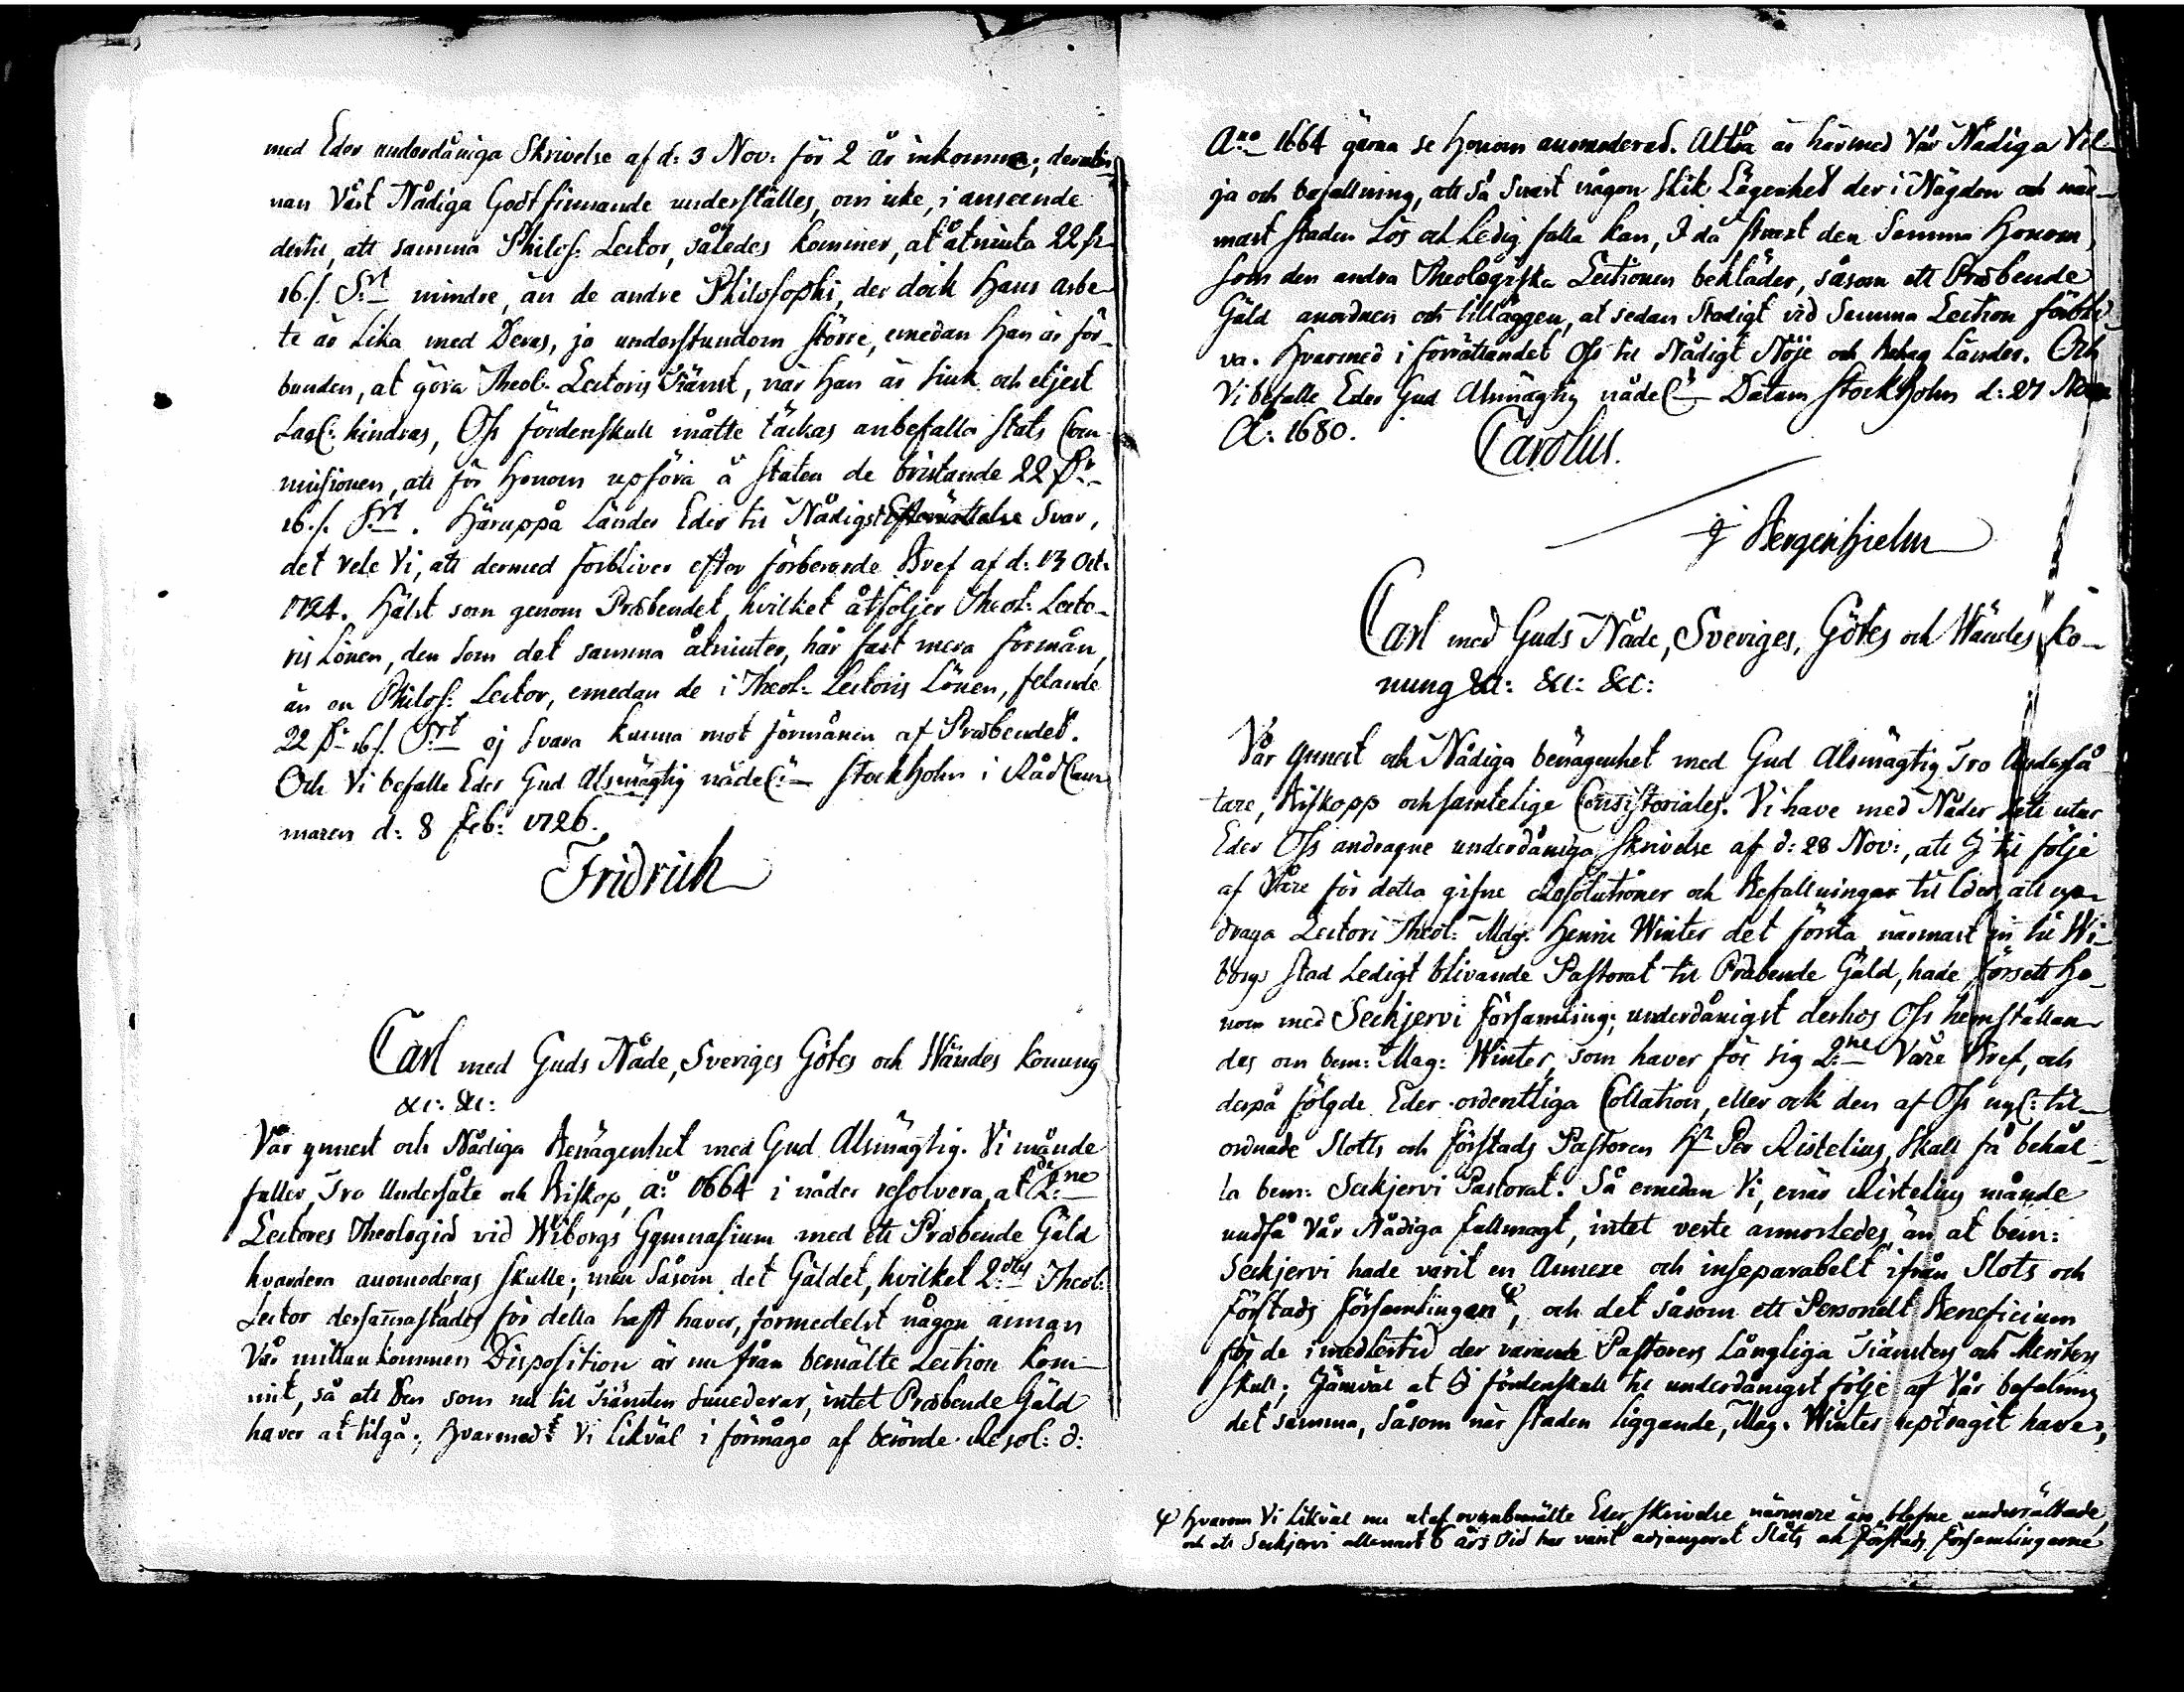 med Eder underdåniga Skrivelse af d: 3 Nov: för 2 år inkomne; derutin
nan Vårt Nådiga Godtfinnande underställes, om icke, i anseende
dertil, att samma Philos: Lector, således kommer, at åtniuta 22 
16./. S:rt mindre, än de andre Philosophi, der dock Hans arbe
te är Lika med Deras, ja understundom större, emedan Han är för-
bunden, at göra Theol: Lectoris Tiänst, när Han är siuk och eljest
Lagl: hindras, Oss fördenskull måtte täckas anbefalla Stats Com
missionen, att för Honom upföra å Staten de bristande 22
16./. S:rt. Häruppå Länder Eder til Nådigst Svar,
det vele Vi, att dermed förbliver efter förberörde Bref af d: 13 Oct:
1724. Hälst som genom Præbendet, hvilket åtföljer Theol: Lecto-
ris Lönen, den som det samma åtniuter, har fast mera förmån,
än en Philos: Lector, emedan de i Theol: Lectoris Lönen, felande
22 16./. S:rt ej svara kunna mot förmånen af Præbendet.
Och Vi befalle Eder Gud Alsmägtig nådel:n Stockholm i Råd Cam
maren d: 8 Feb: 1726.
Fridrich
Carl med Guds Nåde, Sveriges Götes och Wändes Konung
&c: &c:
Vår ynnest och Nådiga Benägenhet med Gud Alsmägtig. Vi månde
fuller, Tro Undersåte och Biskop, a:o 1664 i nåder resolvera, at 2:ne
Lectores Theologiæ vid Wiborgs Gymnasium med ett Præbende Gäld
hvardera accomoderas skulle; men såsom det Gäldet, hvilket 2:dus Theol:
Lector dersammastädes för detta haft haver, formedelst någon annan
Vår mittankommen Disposition är nu från bemälte Lection kom
mit, så att Den som nu til Tiänsten succederar, intet Præbende Gäld
haver at tilgå; Hvarmedt Vi likväl i förmågo af berörde Resol: d:
A:no 1664 gärna se Honom accomoderad. Altså är härmed Vår Nådiga Vil
ja och befallning, att så snart någon slik Lägenhet der i Nägden och när
mast staden Lös och Ledig falla kan, I då strax den samma Honom,
som den andra Theologiska Lectionen bekläder, såsom ett Præbende
Gäld anordnen och tillläggen, at sedan stadigt vid samma Lection förbli
va. Hvarmed i förrättandet Oss til Nådigt Nöje och behag Länder. Och
Vi befalle Eder Gud Alsmägtig nådel:n Datum Stockholm d: 27
A: 1680.
Carolus.
J Bergenhjelm
Carl med Guds Nåde, Sveriges, Götes och Wändes Ko-
nung &c: &c: &c:
Vår ynnest och Nådiga benägenhet med Gud Alsmägtig Tro Underså
tare, Biskopp och samtelige Consistoriales. Vi have med Nåder sett utur
Eder Oss andragne underdåniga skrivelse af d: 28 Nov:, att J til följe
af Våre för detta gifne Resolutioner och Befallningar til Eder, att up-
draga Lectori Theol: Mag: Henric Winter det första närmast in til Wi-
borgs stad Ledigt blivande Pastorat til Præbende Gäld, hade försett Ho-
nom med Seckjervi Församling; underdånigst derhos Oss hemställan
des om bem: Mag: Winter, som haver för sig 2:ne Våre Bref, och
derpå fölgde Eder ordentliga Collation, eller ock den af Oss nyl: til-
ordnade Slotts och Förstads Pastoren Hr Per Ristelius, skall få behål-
la bem: Seckjervi Pastorat. Så emedan Vi, enär Ristelius månde
undfå Vår Nådiga fullmagt, intet veste annorledes än at bem:
Seckjervi hade varit en Annexe och inseparabelt ifrån Slots och
Förstads Församlingen φ, och det såsom ett Personelt Beneficium
för de imedlertid der varande Pastorers Långliga Tiänsters och Meriters
skull; Jämväl at J fördenskull til underdånigst följe af Vår befalning
det samma, såsom när staden liggande, Mag: Winter updragit have;
φ Hvarom Vi Likväl nu utaf ovanbemälte Eder skrivelse närmare än blefne underrättade,
och att Seckjervi allenast 6 års Tid har varit adjungerat Slots och Förstads Församlingarne